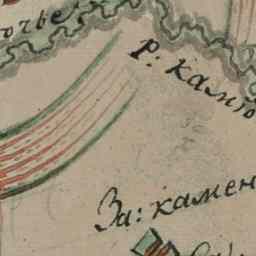 очье
Р: камю
За: камен